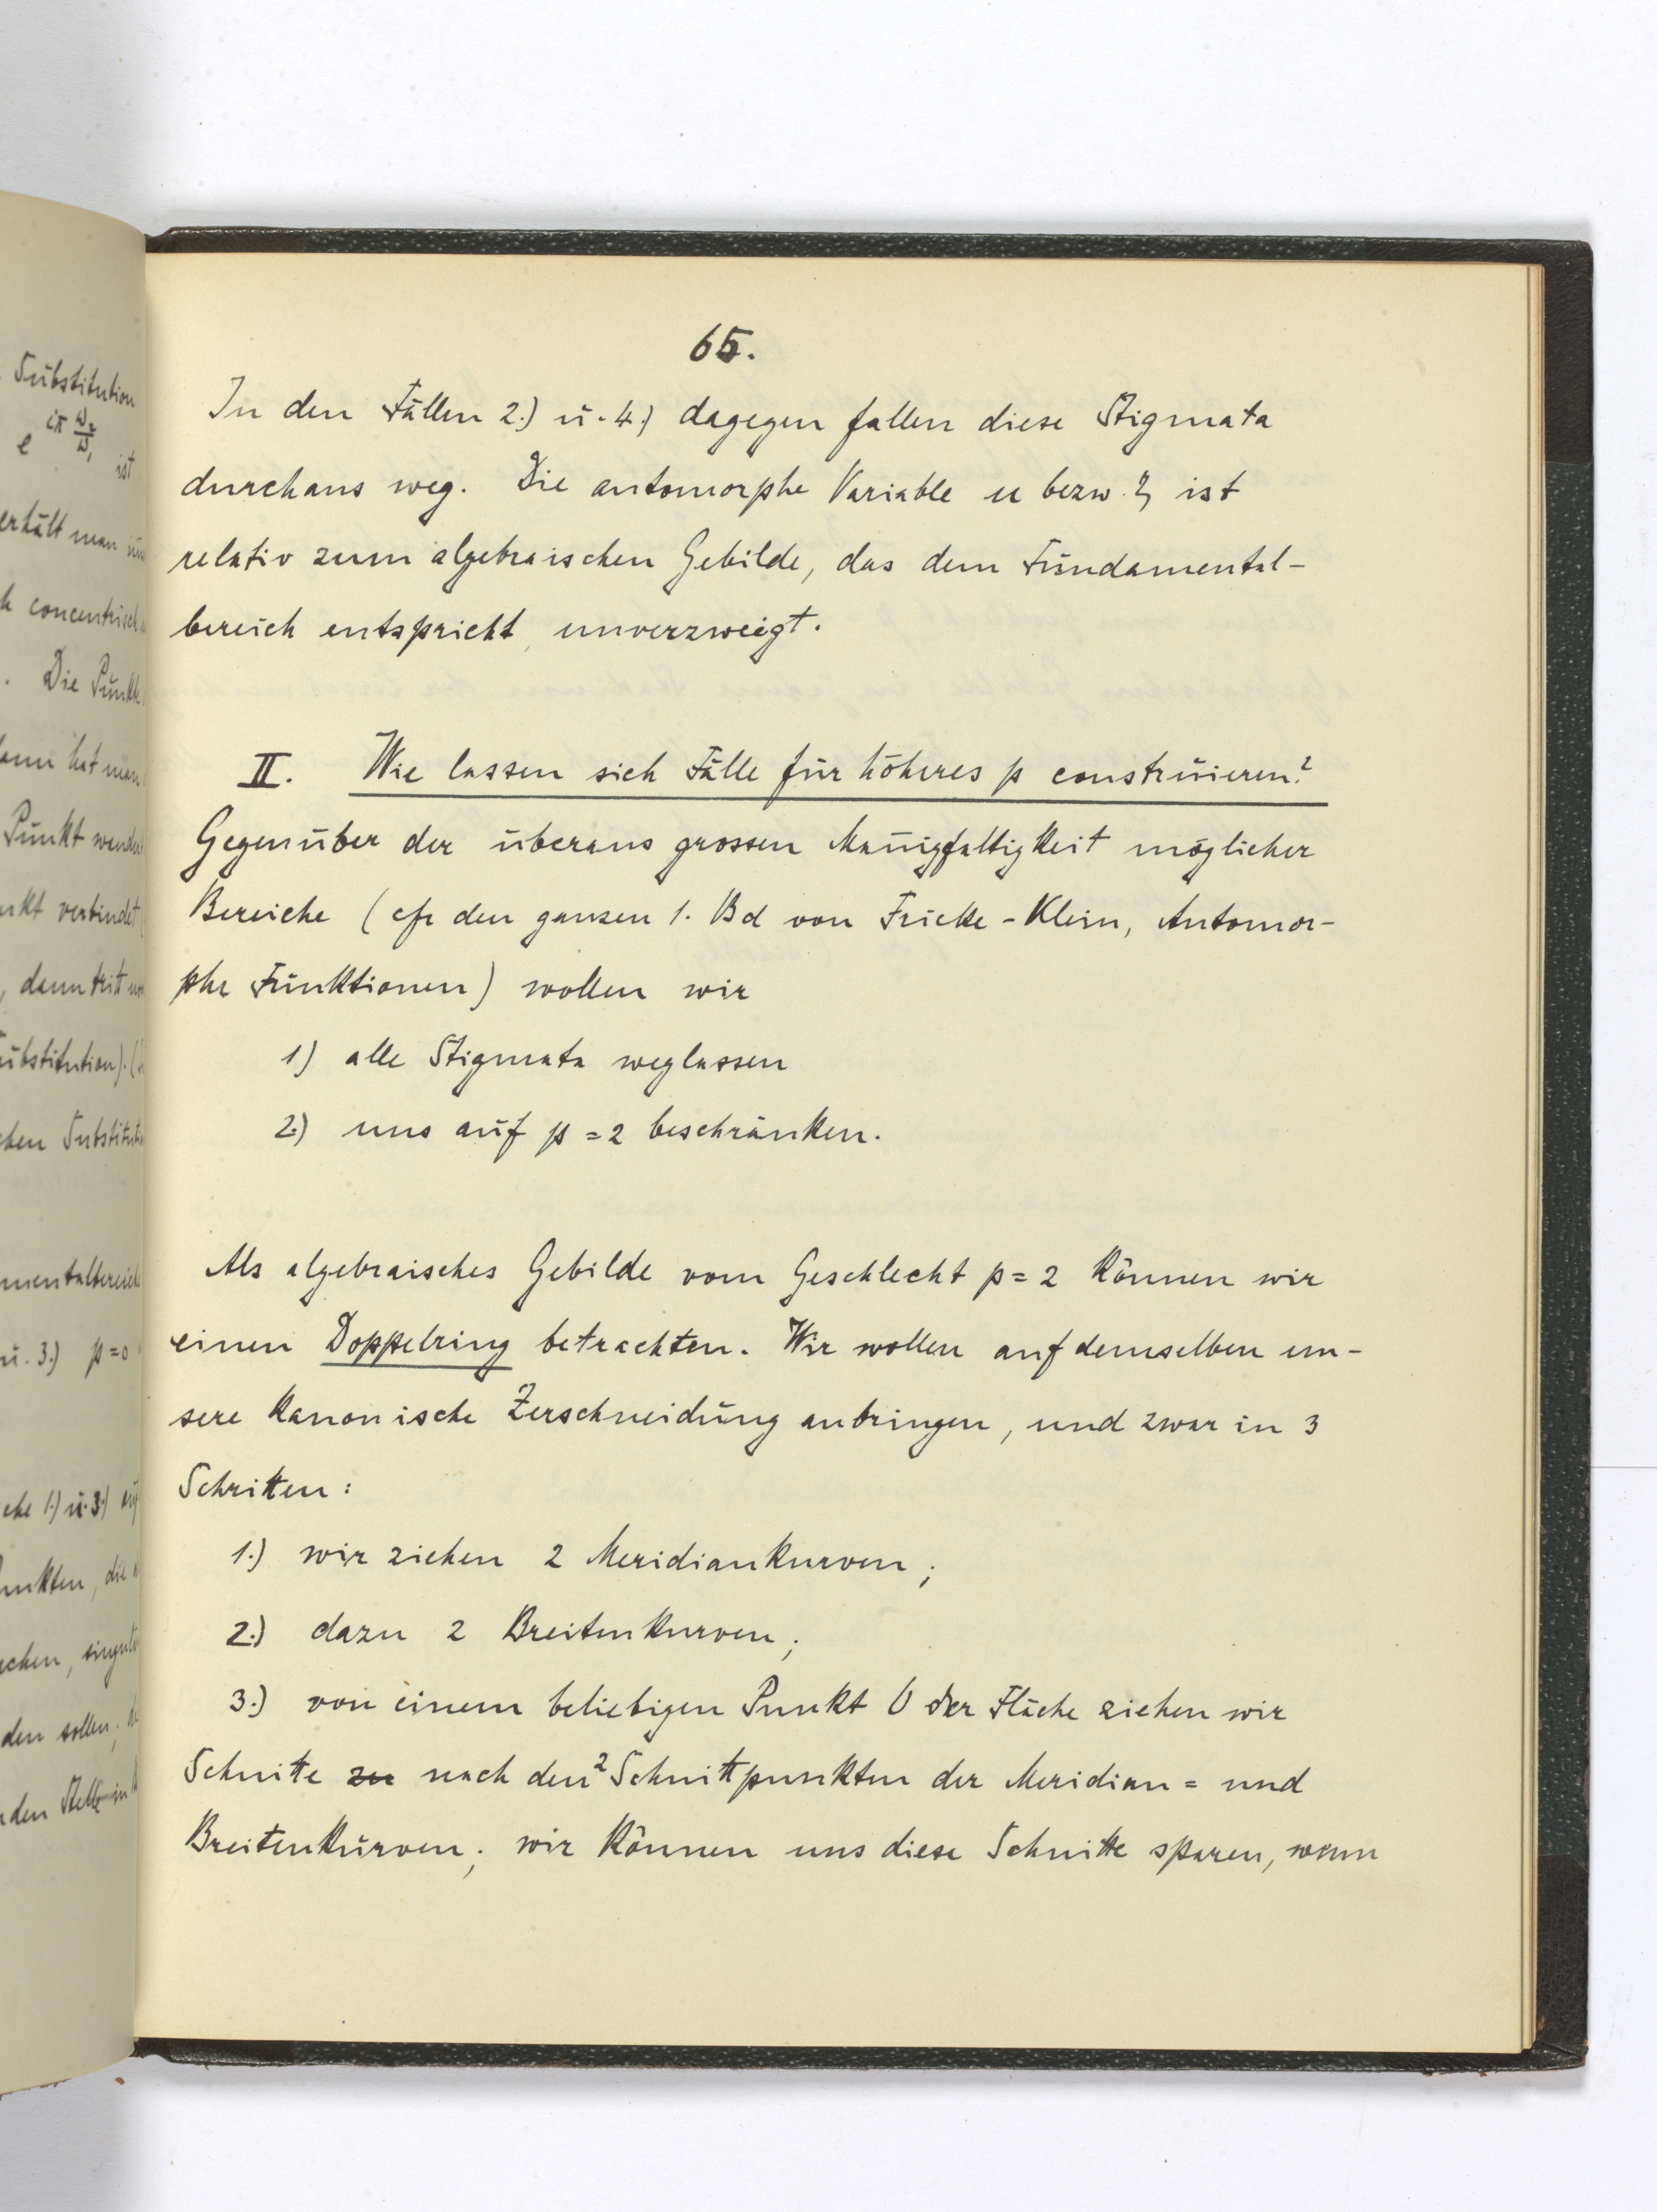 Substitution
e iπ ω₂/ω₁ ist
erhält man
concentrisch
. Die Punkte
hat man
Punkt
verbindet
, dann tritt
Substitution).
Substitut
mentalbereich
u. 3.) p=0
1.) u. 3.)
unkten, die
chen, singulä
den sollen,
den Stelle in
65.
In den Fällen 2.) u. 4.) dagegen fallen diese Stigmata
durchaus weg. Die automorphe Variable u bezw. ζ ist
relativ zum algebraischen Gebilde, das dem Fundamental-
bereich entspricht, unverzweigt.
II. Wie lassen sich Fälle für höheres p construieren?
Gegenüber der überaus grossen Mañigfaltigkeit möglicher
Bereiche (cfr den ganzen 1. Bd von Fricke-Klein, Automor-
phe Funktionen) wollen wir
1) alle Stigmata weglassen
2.) uns auf p=2 beschränken.
Als algebraisches Gebilde vom Geschlecht p=2 können wir
einen Doppelring betrachten. Wir wollen auf demselben un-
sere kanonische Zerschneidung anbringen, und zwar in 3
Schritten:
1.) wir ziehen 2 Meridiankurven;
2.) dazu 2 Breitenkurven;
3.) von einem beliebigen Punkt O der Fläche ziehen wir
Schnitte zu nach den 2 Schnittpunkten der Meridian= und
Breitenkurven; wir können uns diese Schnitte sparen, wenn